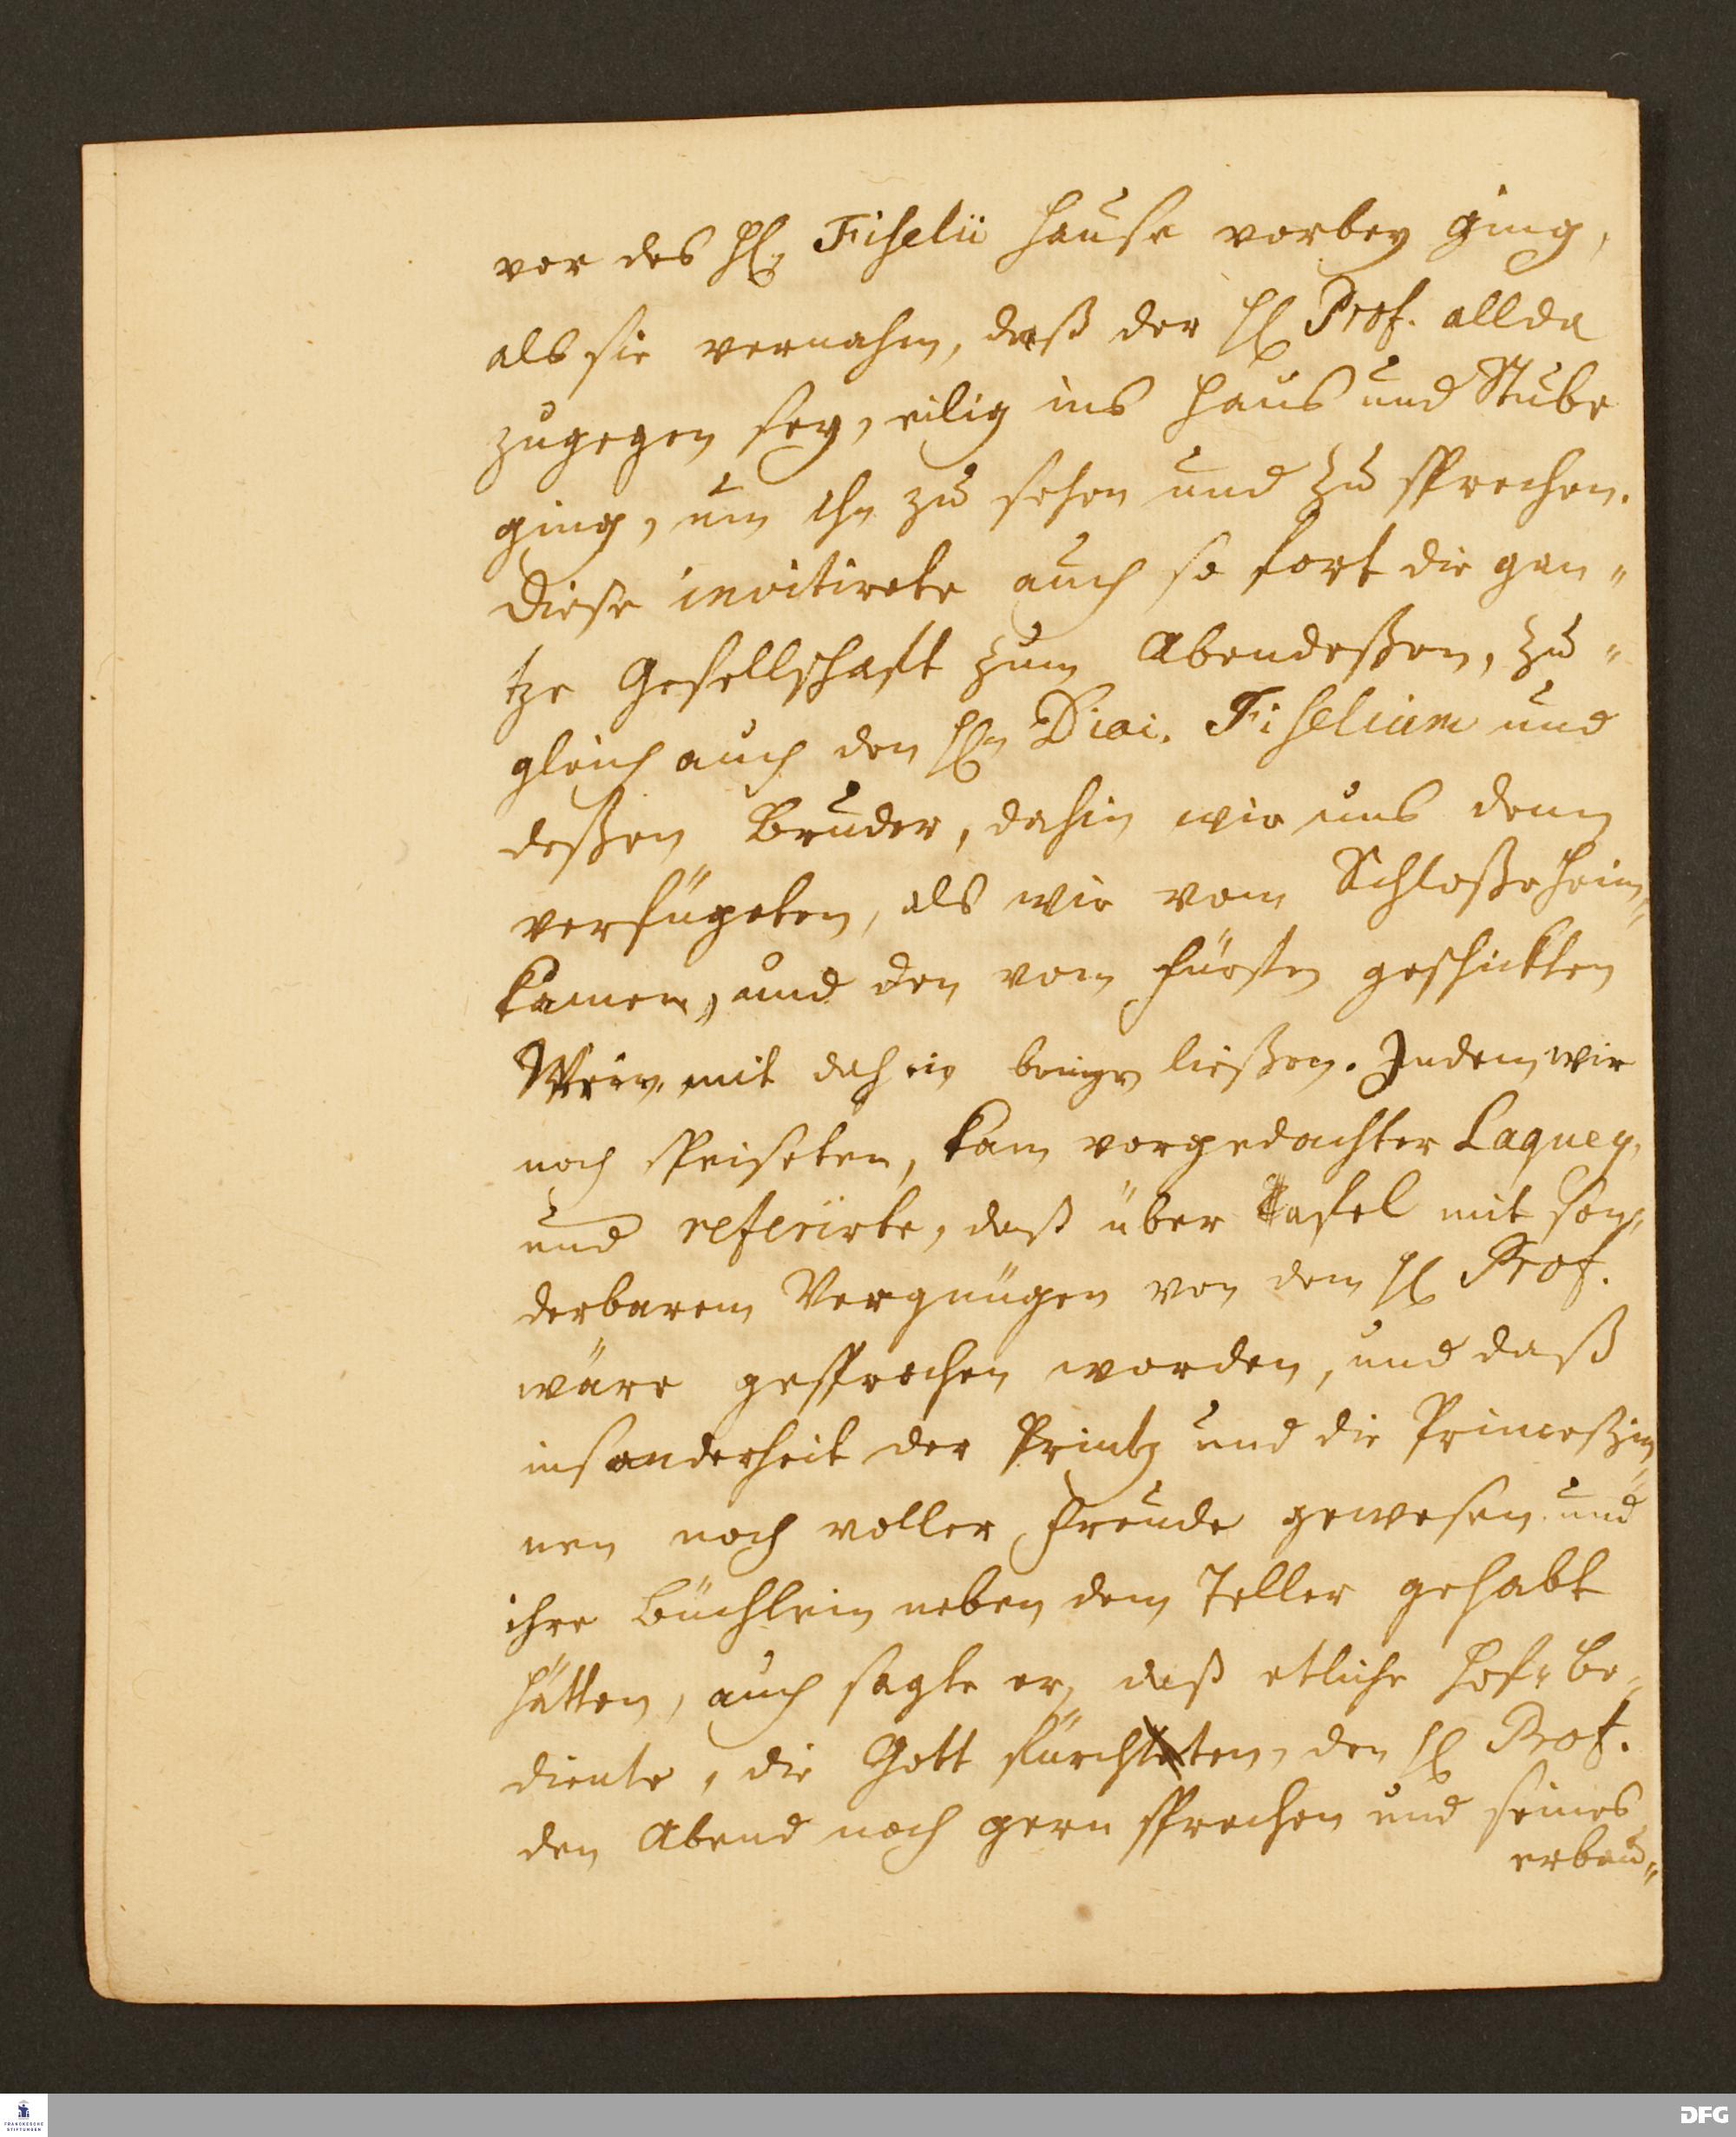 vor des H. Fiselii Hause vorbey ging,
als sie vernahm, daß der H. Prof. allda
zugegen sey, eilig ins Haus und Stube
ging, um ihn zu sehen und zu sprechen.
Diese invitirete auch so fort die gan„
tze Gesellschafft zum Abendeßen, zu„
gleich auch den Hn. Diac. Fiselium und
deßen Bruder, dahin wir uns denn
verfügeten, als wir vom Schloße heim„
kamen, und den vom Fürsten geschickten
Wein mit dahin bringen ließen. Indem wir
noch speiseten, kam vorgedachter Laquey,
und referirte, daß über Tafel mit son„
derbarem Vergnügen von dem H. Prof.
wäre gesprochen worden, und daß
insonderheit der Printz und die Princeßin„
nen noch voller Freude gewesen und
ihre Büchlein neben dem Teller gehabt
hätten, auch sagte er, daß etliche Hof„ Be„
diente, die Gott fürchten, den H. Prof.
den Abend noch gern sprechen und seines
erbau„
FRANCKESCHE
STIFTUNGEN
DFG